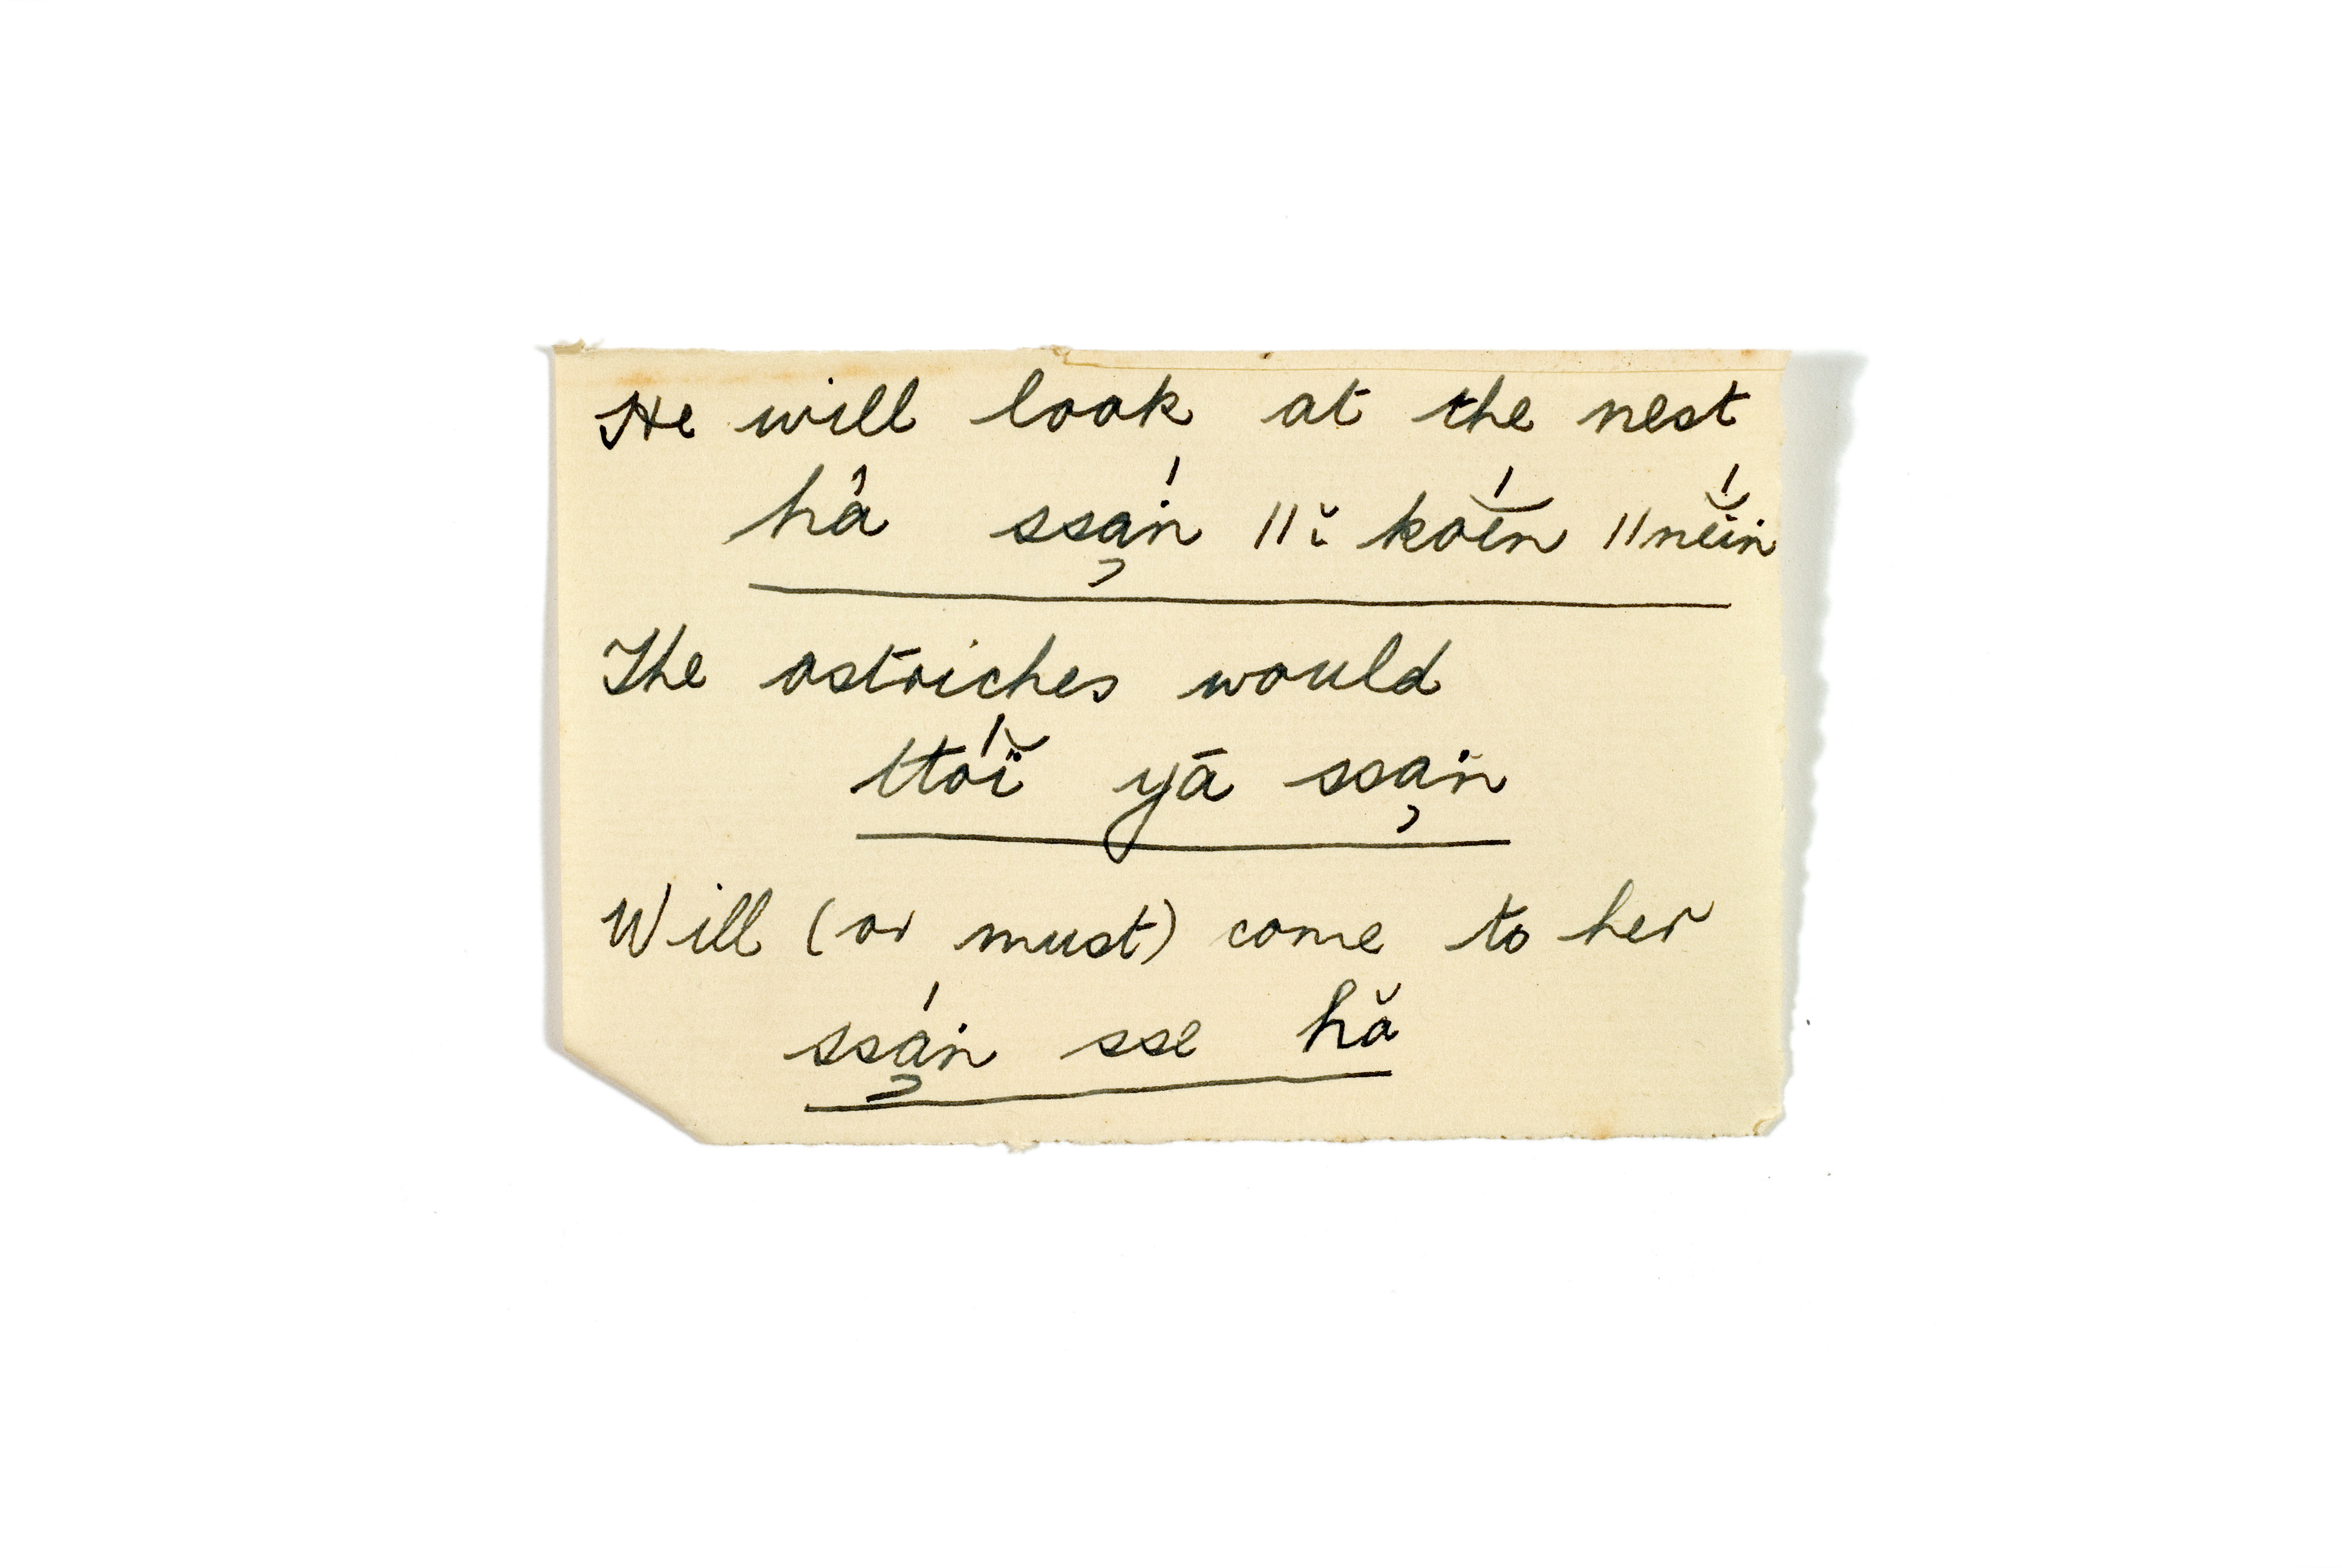 He will look at the nest
hâ ssa̦ṅ́ ǁĭ̱ koḗ̆n ǁnĕ́iṅ
The ostriches would
ttóï̆ yā ssa̦ṅ
Will (or must) come to her
ssá̦ṅ sse hă